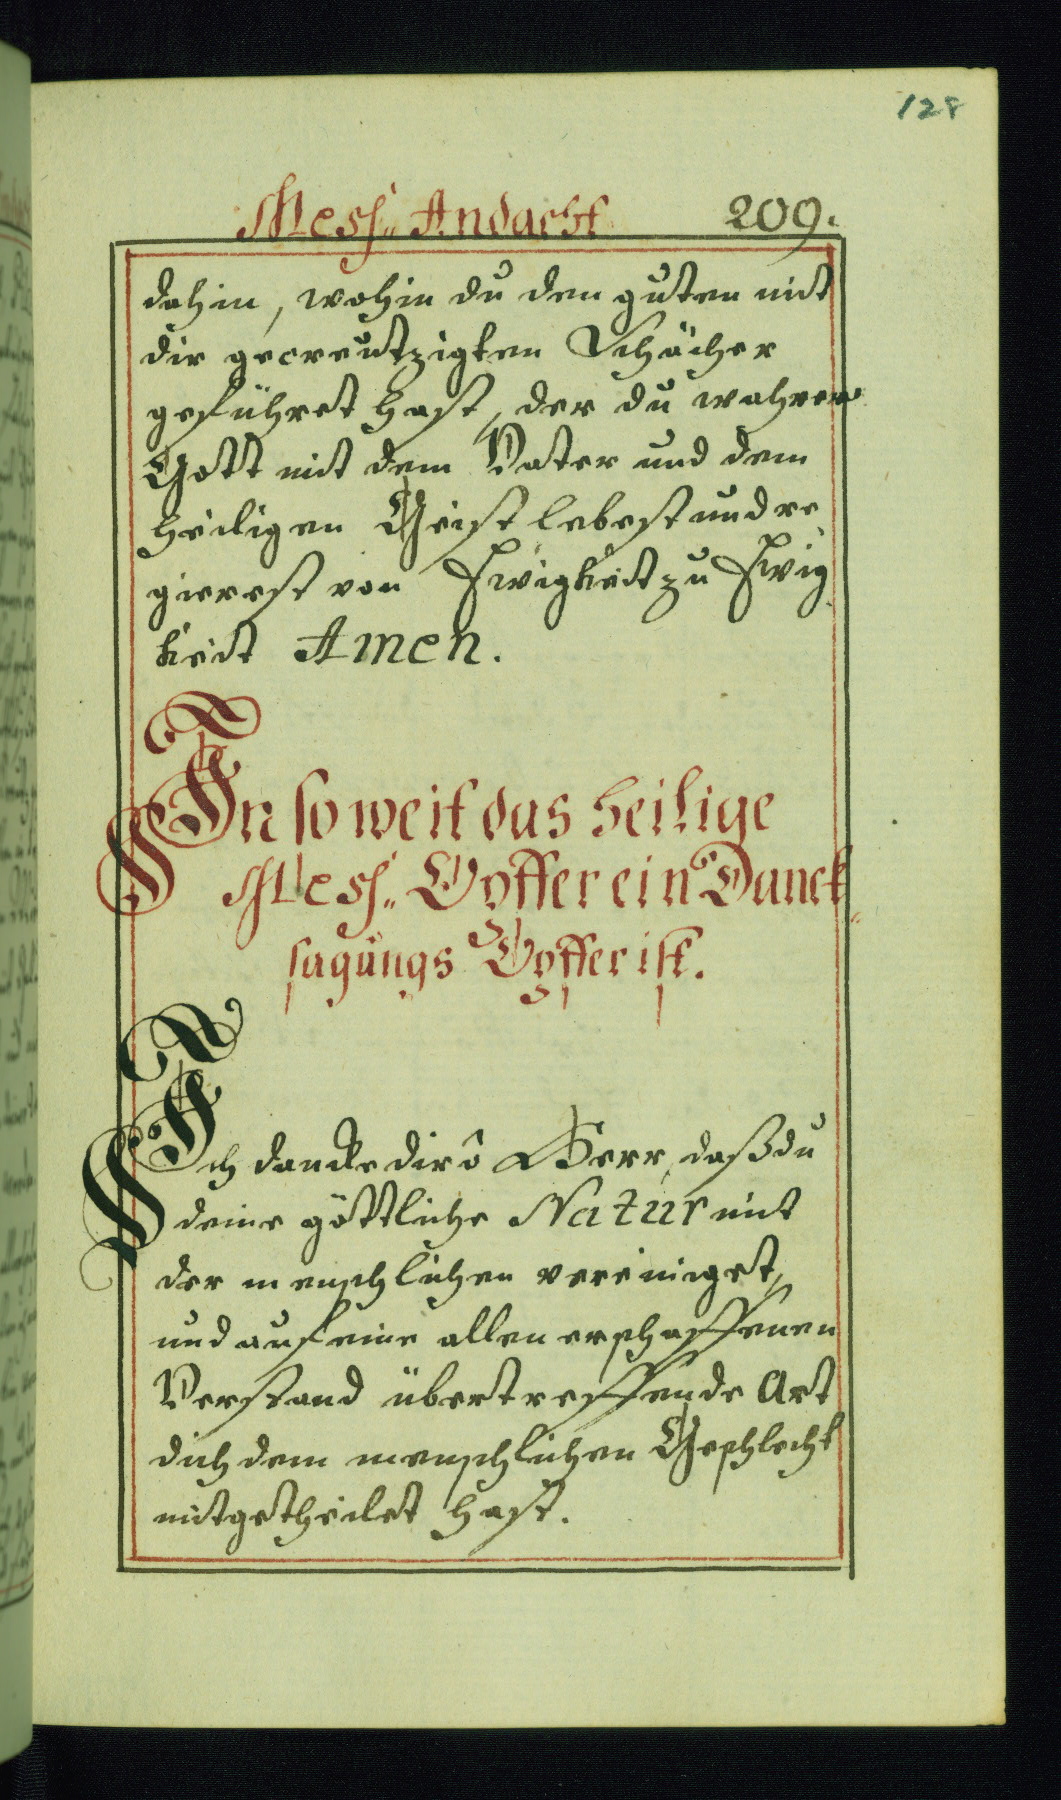 128
Mess- Andacht 209.
dahin, wohin du den guten mit
dir gecreutzigten Schächer
geführet hast, der du wahrer
Gott mit dem Vater und dem
heiligen Geist lebest und re-
gierest von Ewigkeit zu Ewig-
keit Amen.
In so weit das heilige
Mess- Opffer ein Danck-
sagungs Opffer ist.
Ich dancke dir ô Herr, daß du
deine göttliche Natur mit
der menschlichen vereiniget,
und auf eine allen erschaffenen
Verstand übertreffende Art
dich dem menschlichen Geschlecht
mitgetheilet hast.